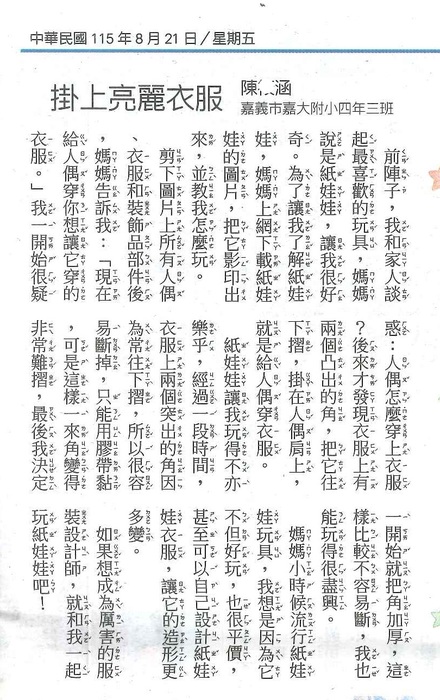 中華民國 115 年 8 月 21 日／星期五
掛上亮麗衣服
陳 涵
嘉義市嘉大附小四年三班
前陣子，我和家人談
起最喜歡的玩具，媽媽
說是紙娃娃，讓我很好
奇。為了讓我了解紙娃
娃，媽媽上網下載紙娃
娃的圖片，把它影印出
來，並教我怎麼玩。
剪下圖片上所有人偶
、衣服和裝飾品部件後
，媽媽告訴我：「現在
給人偶穿你想讓它穿的
衣服。」我一開始很疑
惑：人偶怎麼穿上衣服
？後來才發現衣服上有
兩個凸出的角，把它往
下摺，掛在人偶肩上，
就是給人偶穿衣服。
紙娃娃讓我玩得不亦
樂乎，經過一段時間，
衣服上兩個突出的角因
為常往下摺，所以很容
易斷掉，只能用膠帶黏
，可是這樣一來角變得
非常難摺，最後我決定
一開始就把角加厚，這
樣比較不容易斷，我也
能玩得很盡興。
媽媽小時候流行紙娃
娃玩具，我想是因為它
不但好玩，也很平價，
甚至可以自己設計紙娃
娃衣服，讓它的造形更
多變。
如果想成為厲害的服
裝設計師，就和我一起
玩紙娃娃吧！